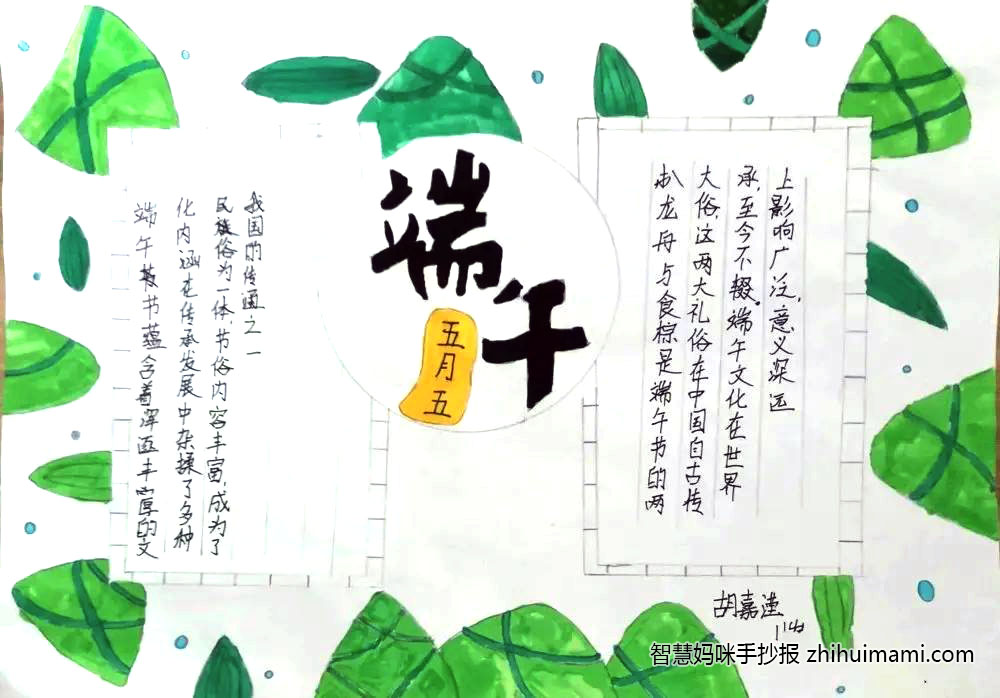 端午
五月五
端午节书蕴含着深邃丰厚的文
化内涵在传承发展中杂揉了多种
民族俗为一体,节俗内容丰富,成为了
我国的传通之一
扒龙舟与食棕是端午节的两
大俗,这两大礼俗在中国自古传
承,至今不辍.端午文化在世界
上影响广泛,意义深远
胡嘉
智慧妈咪手抄报 zhihuimami.com